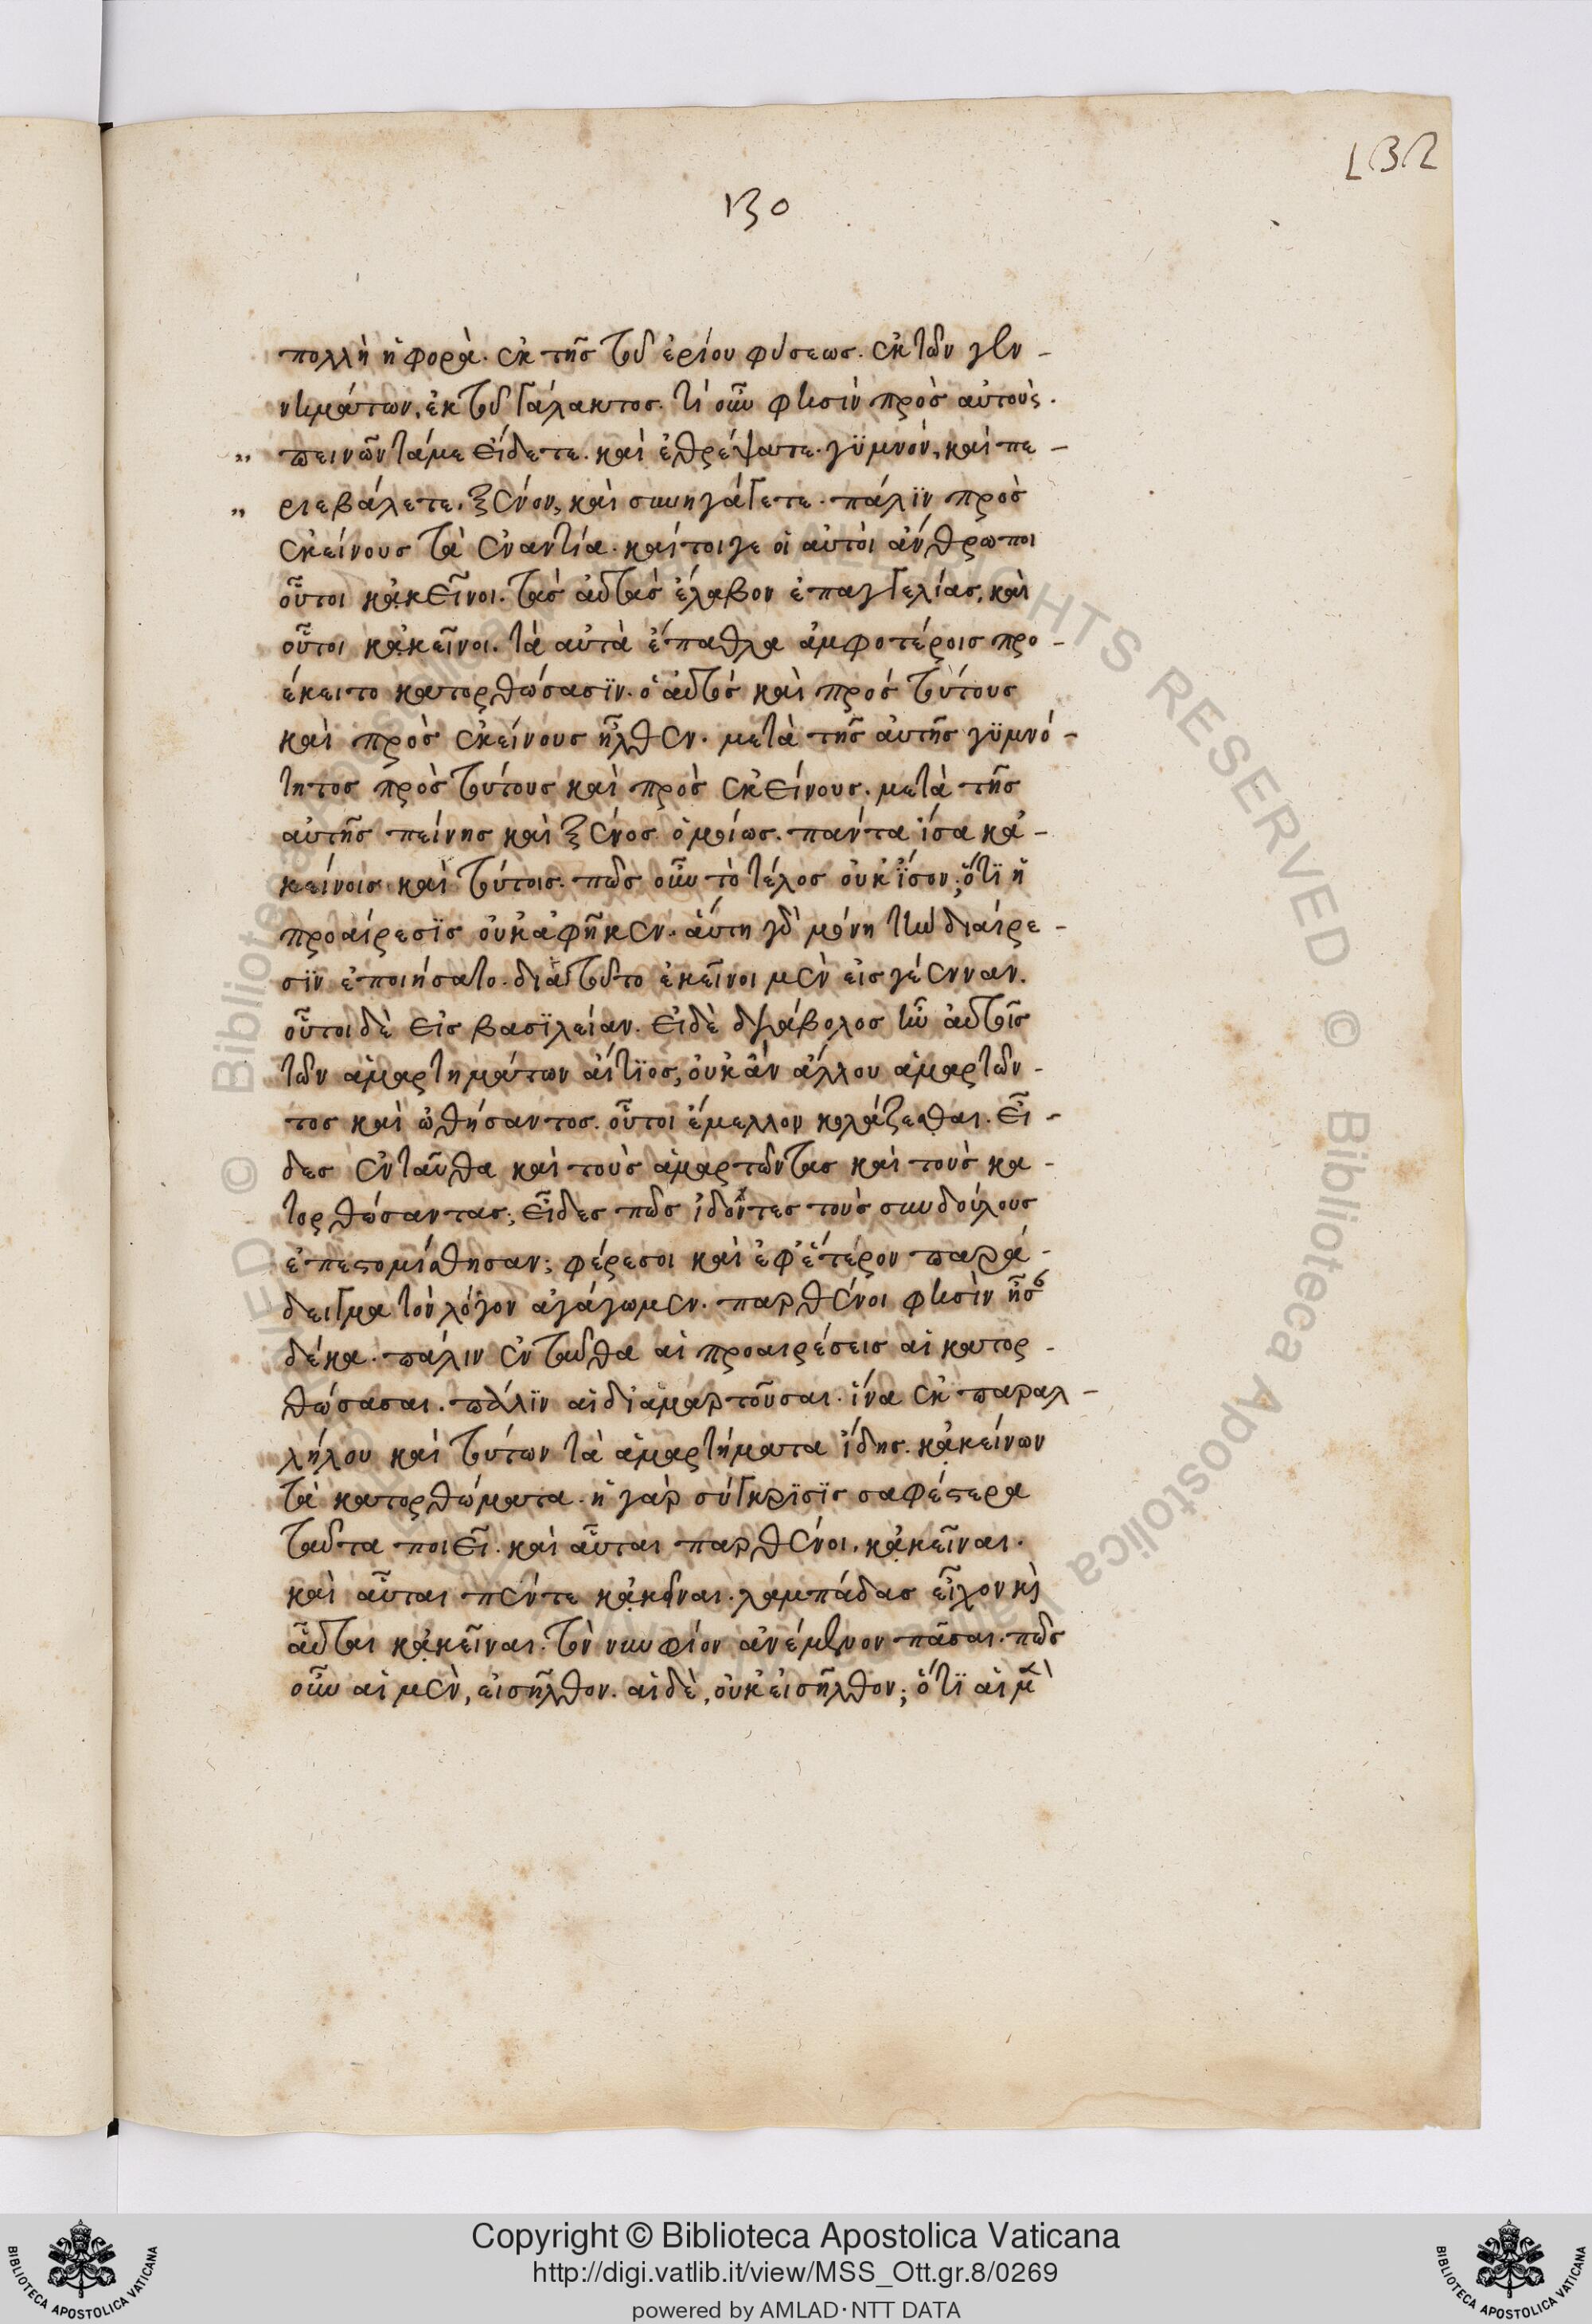 132
130
πολλὴ ἡ φορά. ἐκ τῆς τοῦ ἐρίου φύσεως. ἐκ τῶν γεν-
νημάτων, ἐκ τοῦ γάλακτος. τί οὖν φησὶν πρὸς αὐτούς.
" πεινῶντά με εἴδετε. καὶ ἐθρέψατε. γϋμνόν, καὶ πε-
" ριεβάλετε. ξένον, καὶ συνηγάγετε. πάλϊν πρὸς
ἐκείνους τὰ ἐναντία. καίτοιγε οἱ αὐτοὶ ἄνθρωποι
οὗτοι κἀκεῖνοι. τὰς αὐτὰς ἔλαβον ἐπαγγελίας, καὶ
οὗτοι κἀκεῖνοι. τὰ αὐτὰ ἔπαθλα ἀμφοτέροις προ-
έκειτο κατορθώσασϊν. ὁ αὐτὸς καὶ πρὸς τούτους
καὶ πρὸς ἐκείνους ἦλθεν. μετὰ τῆς αὐτῆς γϋμνό-
τητος πρὸς τούτους καὶ πρὸς ἐκείνους. μετὰ τῆς
αὐτῆς πείνης καὶ ξένος ὁμοίως. πάντα ἴσα κἀ-
κείνοις καὶ τούτοις. πῶς οὖν τὸ τέλος οὐκ ἴσον; ὅτϊ ἡ
προαίρεσϊς οὐκ ἀφῆκεν. αὕτη γὰρ μόνη τὴν διαίρε-
σϊν ἐποιήσατο. διὰ τοῦτο ἐκεῖνοι μὲν εἰς γέενναν.
οὗτοι δὲ εἰς βασϊλείαν. εἰ δὲ διάβολος ἦν αὐτοῖς
τῶν ἁμαρτημάτων αἴτϊος, οὐκ ἂν ἄλλου ἁμαρτῶν-
τος καὶ ὠθήσαντος. οὗτοι ἔμελλον κολάζεσθαι. εἶ-
δες ἐνταῦθα καὶ τοὺς ἁμαρτῶντας καὶ τοὺς κα-
τορθώσαντας; εἶδες πῶς ἰδόντες τοὺς συνδούλους
ἐπεστομίσθησαν; φέρε σοι καὶ ἐφ' ἕτερον παρά-
δειγμα τὸν λόγον ἀγάγωμεν. παρθένοι φησὶν ἦσ
δέκα. πάλιν ἐνταῦθα αἱ προαιρέσεις αἱ κατορ-
θώσασαι. πάλϊν αἱ διαμαρτοῦσαι. ἵνα ἐκ παραλ-
λήλου καὶ τούτων τὰ ἁμαρτήματα ἴδῃς. κἀκείνων
τὰ κατορθώματα. ἡ γὰρ σύγκρϊσϊς σαφέστερα
ταῦτα ποιεῖ. καὶ αὗται παρθένοι. κἀκεῖναι.
καὶ αὗται πέντε κἀκεῖναι. λαμπάδας εἶχον κὶ
αὗται κἀκεῖναι. τὸν νυμφίον ἀνέμενον πᾶσαι. πῶς
οὖν αἱ μὲν, εἰσῆλθον. αἱ δὲ, οὐκ εἰσῆλθον; ὅτϊ αἱ μ
Copyright © Biblioteca Apostolica Vaticana
http://digi.vatlib.it/view/MSS_Ott.gr.8/0269
powered by AMLAD·NTT DATA